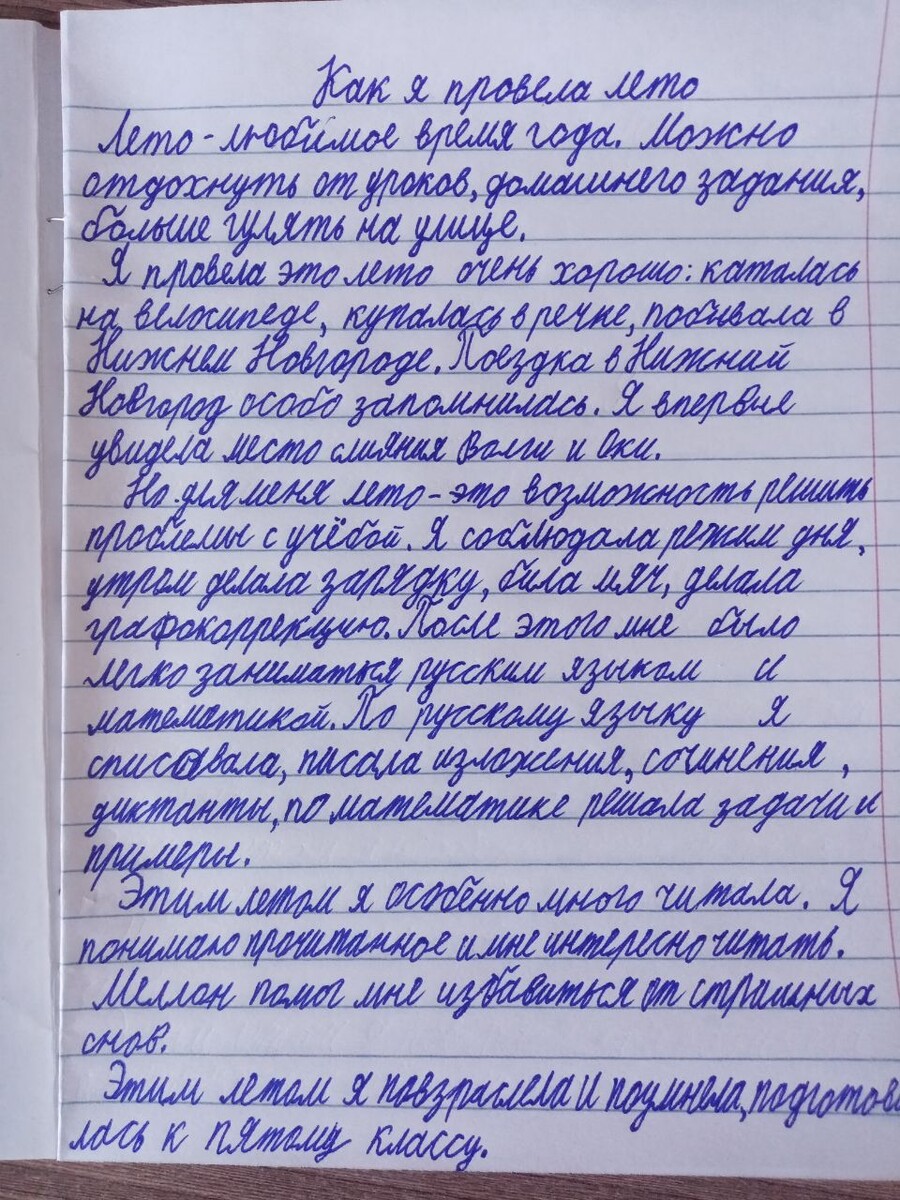 Как я провела лето
Лето - любимое время года. Можно
отдохнуть от уроков, домашнего задания,
больше гулять на улице.
Я провела это лето очень хорошо: каталась
на велосипеде, купалась в речке, побывала в
Нижнем Новгороде. Поездка в Нижний
Новгород особо запомнилась. Я впервые
увидела место слияния Волги и Оки.
Но для меня лето - это возможность решить
проблемы с учёбой. Я соблюдала режим дня,
утром делала зарядку, била мяч, делала
графокоррекцию. После этого мне было
легко заниматься русским языком и
математикой. По русскому языку я
списовала, писала изложения, сочинения,
диктанты, по математике решала задачи и
примеры.
Этим летом я особенно много читала. Я
понимаю прочитанное и мне интересно читать.
Меллон помог мне избавиться от страшных
снов.
Этим летом я повзраслела и поумнела, подготови
лась к пятому классу.